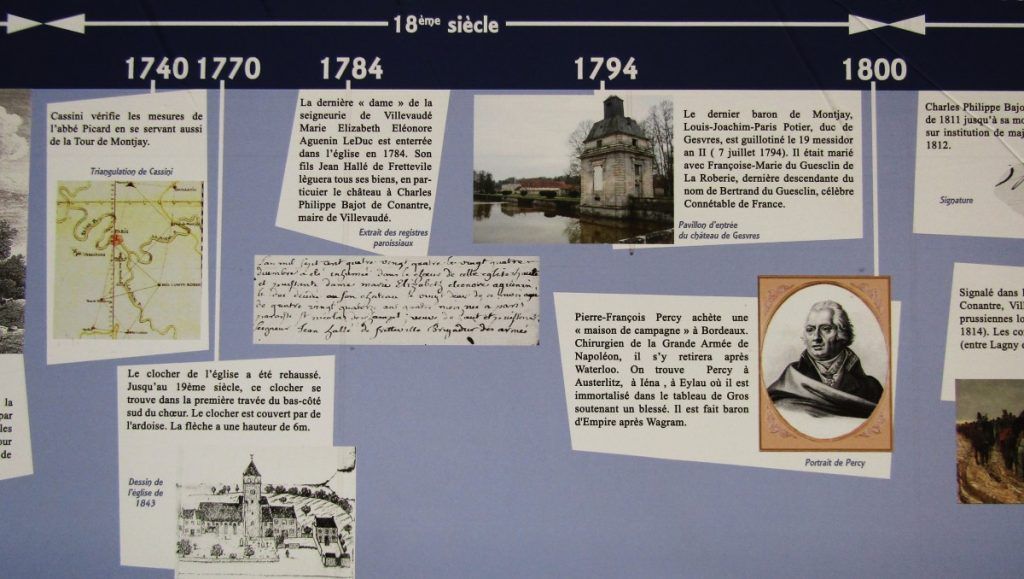 18ème siècle
1740
1770
1784
1794
1800
Cassini vérifie les mesures de
l'abbé Picard en se servant aussi
de la Tour de Montjay.
Triangulation de Cassini
PARIS
La dernière « dame » de la
seigneurie de Villevaudé
Marie Elizabeth Eléonore
Aguenin LeDuc est enterrée
dans l'église en 1784. Son
fils Jean Hallé de Frettevile
lèguera tous ses biens, en par-
ticuier le château à Charles
Philippe Bajot de Conantre,
maire de Villevaudé.
Extrait des registres
paroissiaux
Lan mil sept cent quatre vingt quatre le vingt quatre
decembre a été inhumée dans le chœur de cette eglise haute
et puissante dame marie Elizabeth eleonore aguenin
le duc
Jean hallé de fretteville Brigadier des armées
Le clocher de l'église a été rehaussé.
Jusqu'au 19ème siècle, ce clocher se
trouve dans la première travée du bas-côté
sud du chœur. Le clocher est couvert par de
l'ardoise. La flèche a une hauteur de 6m.
Dessin de
l'église de
1843
Le dernier baron de Montjay,
Louis-Joachim-Paris Potier, duc de
Gesvres, est guillotiné le 19 messidor
an II ( 7 juillet 1794). Il était marié
avec Françoise-Marie du Guesclin de
La Roberie, dernière descendante du
nom de Bertrand du Guesclin, célèbre
Connétable de France.
Pavillon d'entrée
du château de Gesvres
Pierre-François Percy achète une
« maison de campagne » à Bordeaux.
Chirurgien de la Grande Armée de
Napoléon, il s'y retirera après
Waterloo. On trouve Percy à
Austerlitz, à Iéna , à Eylau où il est
immortalisé dans le tableau de Gros
soutenant un blessé. Il est fait baron
d'Empire après Wagram.
Portrait de Percy
Charles Philippe Bajo
de 1811 jusqu'à sa mo
sur institution de maj
1812.
Signature
Signalé dans l
Conantre, Vil
prussiennes lo
1814). Les co
(entre Lagny e
la
par
les
our
de